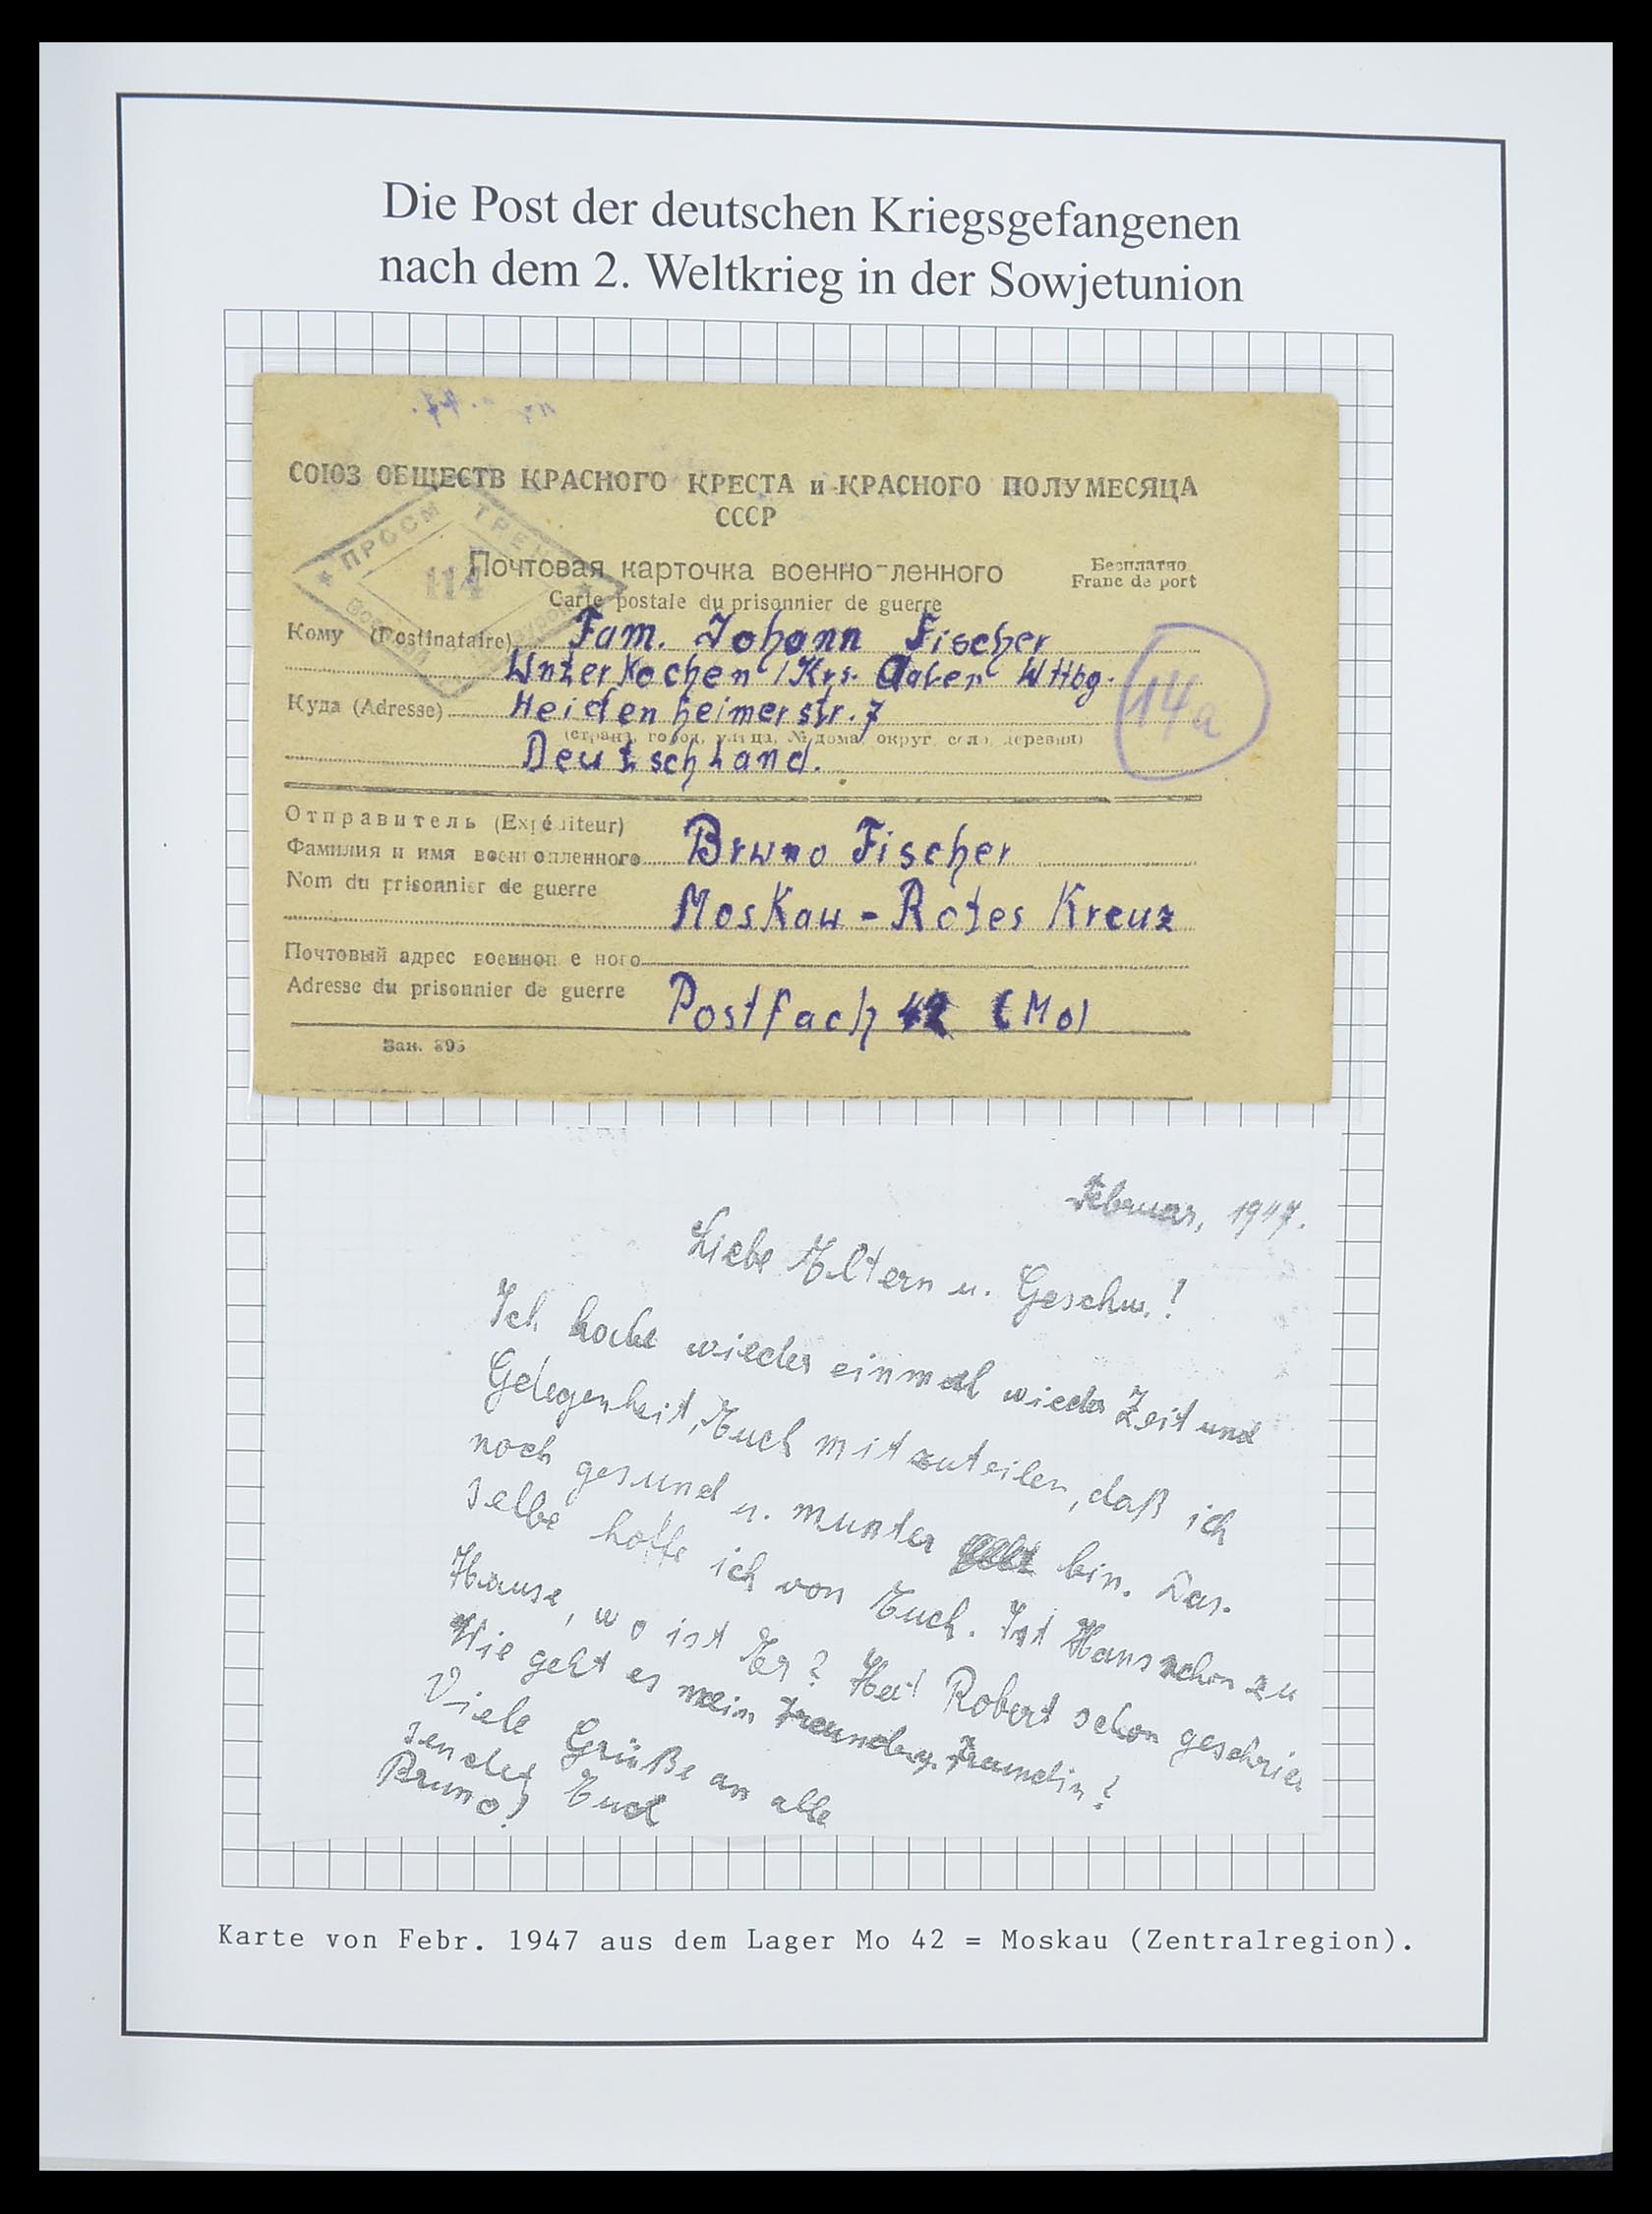 Die Post der deutschen Kriegsgefangenen
nach dem 2. Weltkrieg in der Sowjetunion
СОЮЗ ОБЩЕСТВ КРАСНОГО КРЕСТА и КРАСНОГО ПОЛУМЕСЯЦА
СССР
ПРОСМОТРЕНО
114
Почтовая карточка военно-ленного
Бесплатно
Carte postale du prisonnier de guerre
Franc de port
Кому (Destinataire) Fam. Johann Fischer
Unterkochen / Krs. Aalen Wttbg.
14a
Куда (Adresse) Heidenheimerstr. 7
(страна, город, улица, № дома, округ, село, деревня)
Deutschland.
Отправитель (Expéditeur)
Фамилия и имя военнопленного Bruno Fischer
Nom du prisonnier de guerre
Moskau - Rotes Kreuz
Почтовый адрес военноп е ного
Adresse du prisonnier de guerre Postfach 42 (Mo)
Зак. 895
Februar, 1947.
Liebe Eltern u. Geschw.!
Ich habe wieder einmal wieder Zeit und
Gelegenheit, Euch mitzuteilen, daß ich
noch gesund u. munter bin. Das-
selbe hoffe ich von Euch. Ist Hans schon zu
Hause, wo ist Er? Hat Robert schon geschrieb
Wie geht es mein Freund u. Freundin?
Viele Grüße an alle
sendet Euch
Bruno!
Karte von Febr. 1947 aus dem Lager Mo 42 = Moskau (Zentralregion).